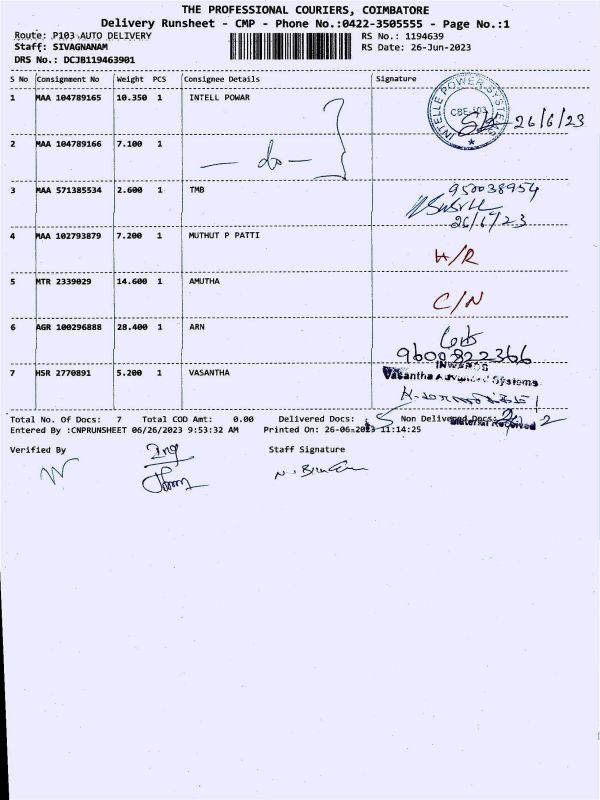 THE PROFESSIONAL COURIERS, COIMBATORE
Delivery Runsheet - CMP - Phone No.:0422-3505555 - Page No.:1
Route: P103 AUTO DELIVERY RS No.: 1194639
Staff: SIVAGNANAM RS Date: 26-Jun-2023
DRS No.: DCJB119463901
S No Consignment No Weight PCS Consignee Details Signature
1 MAA 104789165 10.350 1 INTELL POWAR
INTELLE POWER SYSTEMS CBE-103
26/6/23
2 MAA 104789166 7.100 1
— do —
3 MAA 571385534 2.600 1 TMB
950038954
26/6/23
4 MAA 102793879 7.200 1 MUTHUT P PATTI
H/R
5 MTR 2339029 14.600 1 AMUTHA
C/N
6 AGR 100296888 28.400 1 ARN
9600822366
7 HSR 2770891 5.200 1 VASANTHA
INWARDS
Vasantha Advanced Systems
Material Received
Total No. Of Docs: 7 Total COD Amt: 0.00 Delivered Docs: 5 Non Delivered Docs: 2
Entered By :CNPRUNSHEET 06/26/2023 9:53:32 AM Printed On: 26-06-2023 11:14:25
Verified By Staff Signature